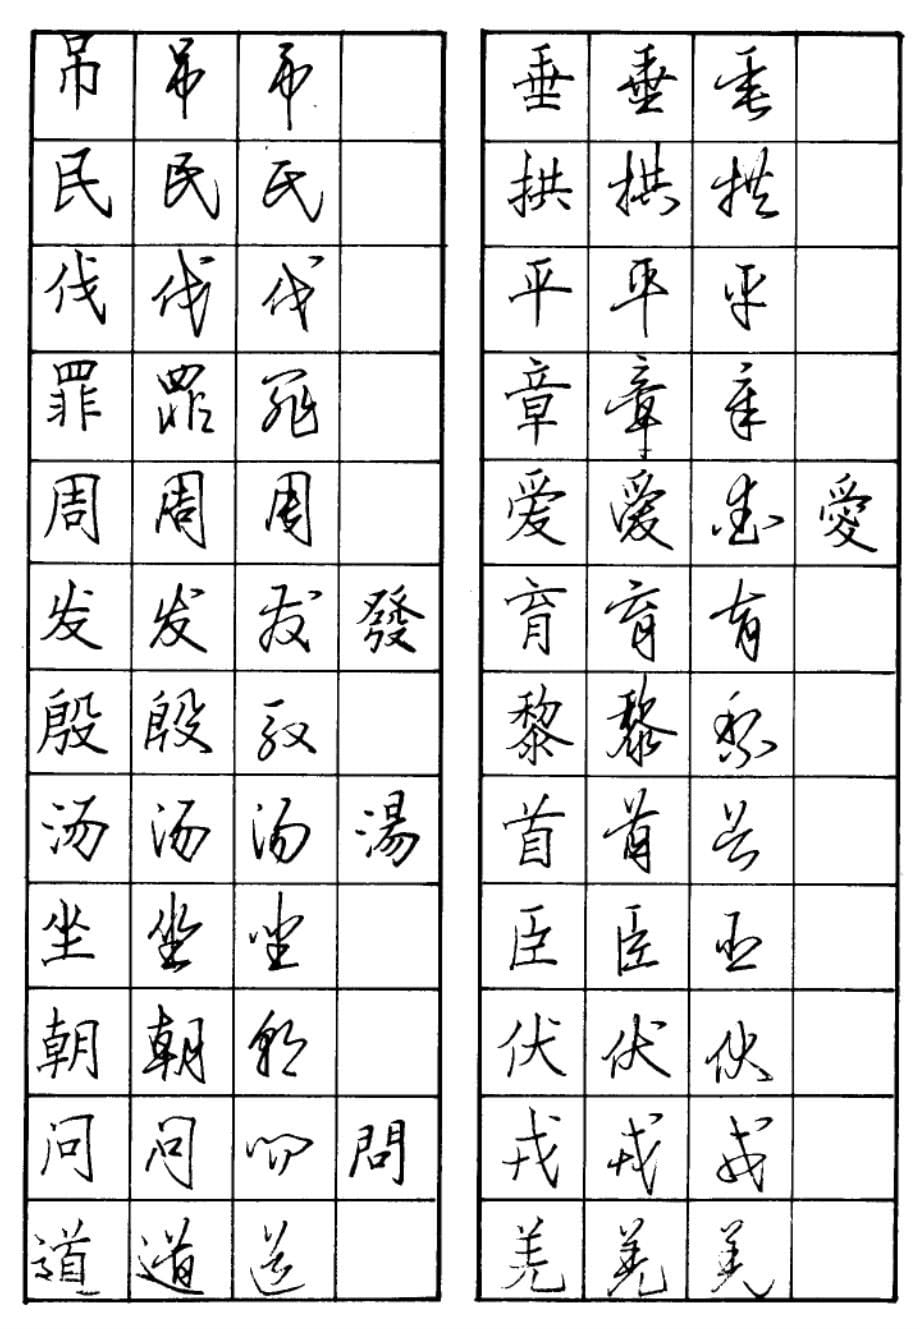 吊 吊 吊
民 民 民
伐 伐 伐
罪 罪 罪
周 周 周
发 发 发 發
殷 殷 殷
汤 汤 汤 湯
坐 坐 坐
朝 朝 朝
问 问 问 問
道 道 道
垂 垂 垂
拱 拱 拱
平 平 平
章 章 章
爱 爱 爱 愛
育 育 育
黎 黎 黎
首 首 首
臣 臣 臣
伏 伏 伏
戎 戎 戎
羌 羌 羌